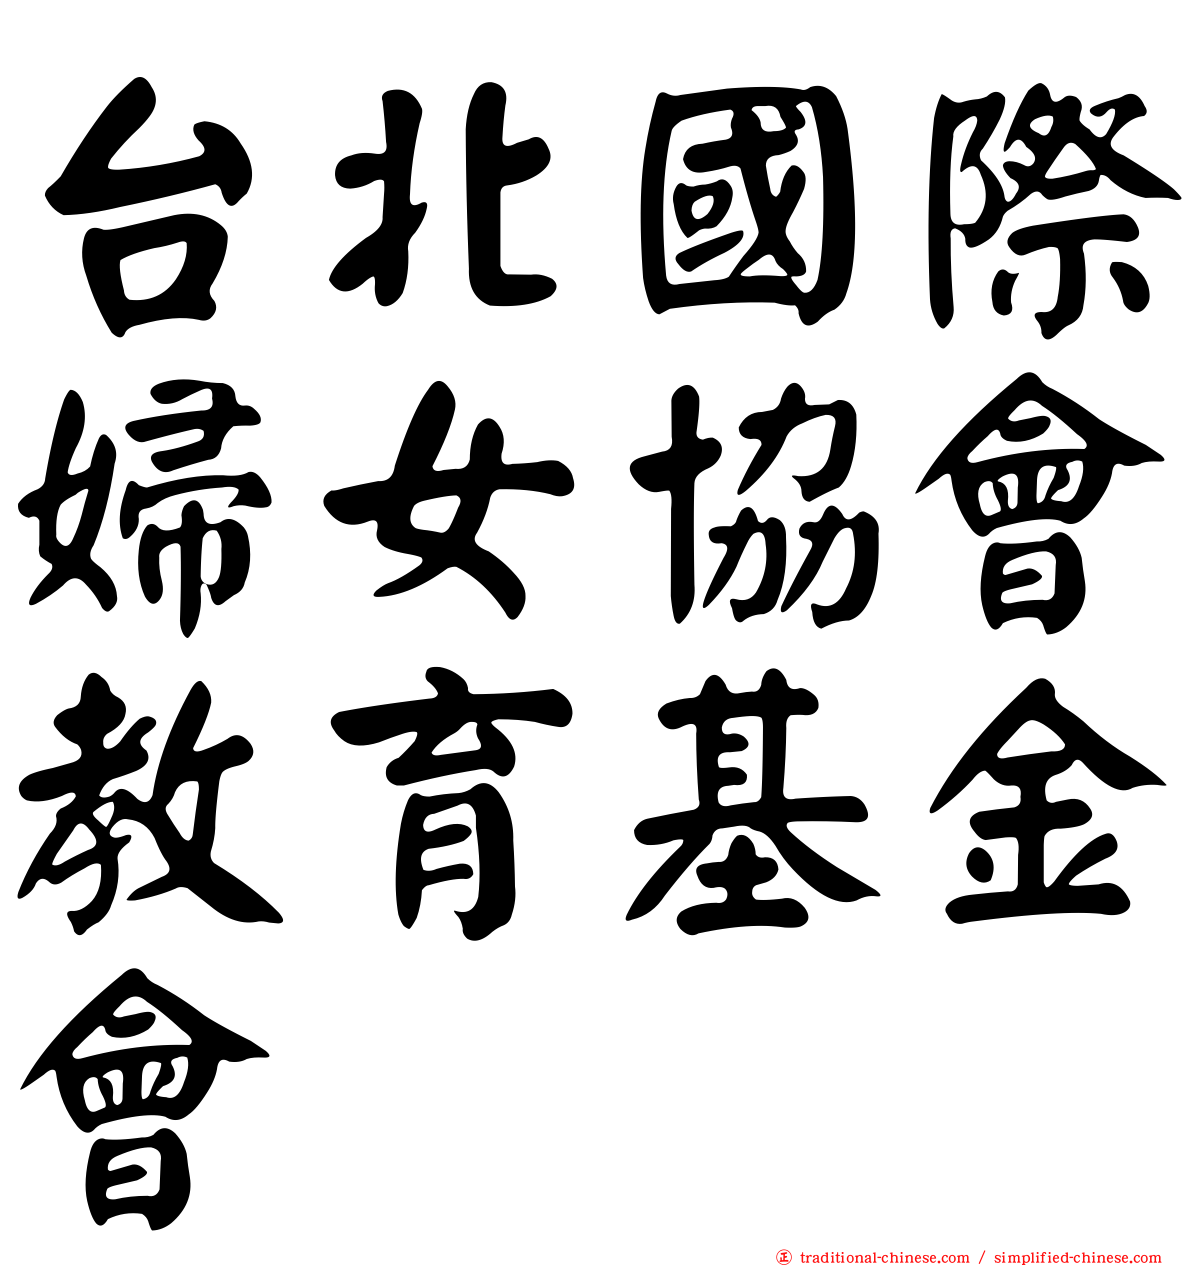 台北國際
婦女協會
教育基金
會
㊣ traditional-chinese.com / simplified-chinese.com